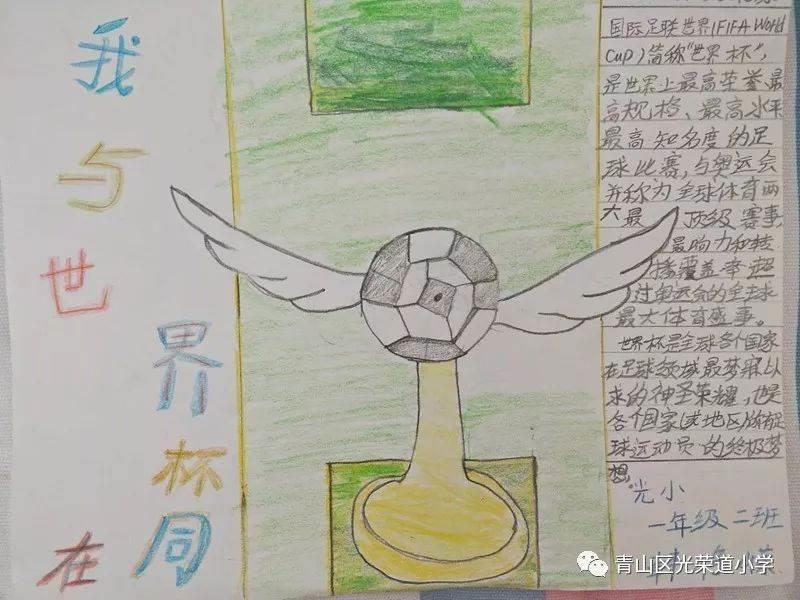 我
与
世
界
杯
同
在
国际足联世界(FIFA World
Cup)简称"世界杯",
是世界上最高荣誉、最
高规格、最高水平
最高知名度的足
球比赛,与奥运会
并称为全球体育两
大最 顶级赛事,
影响力和转
播覆盖率超
过奥运会的全球
最大体育盛事。
世界杯是全球各个国家
在足球领域最梦寐以
求的神圣荣耀,也是
各个国家(或地区)所有足
球运动员的终极梦
想。
光小
一年级二班
青山区光荣道小学